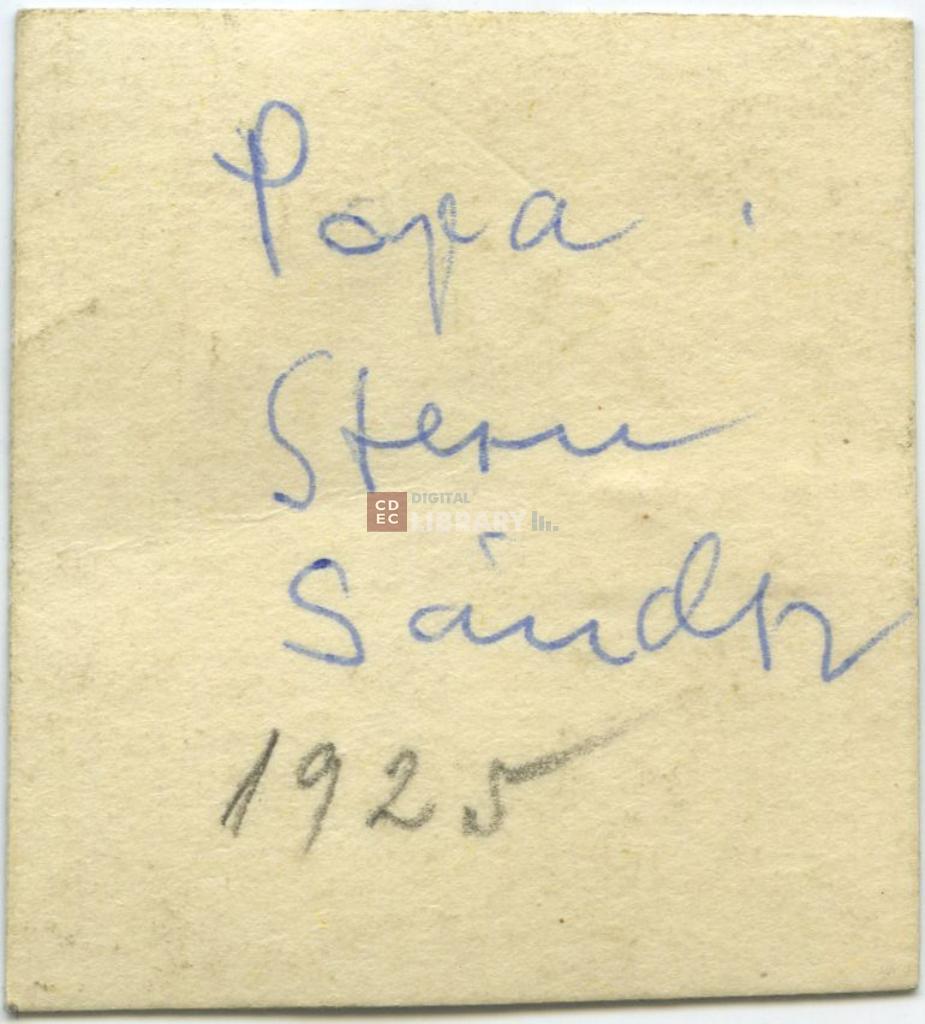 Papa.
Stern
Sándor
1925
CD
EC
DIGITAL
LIBRARY